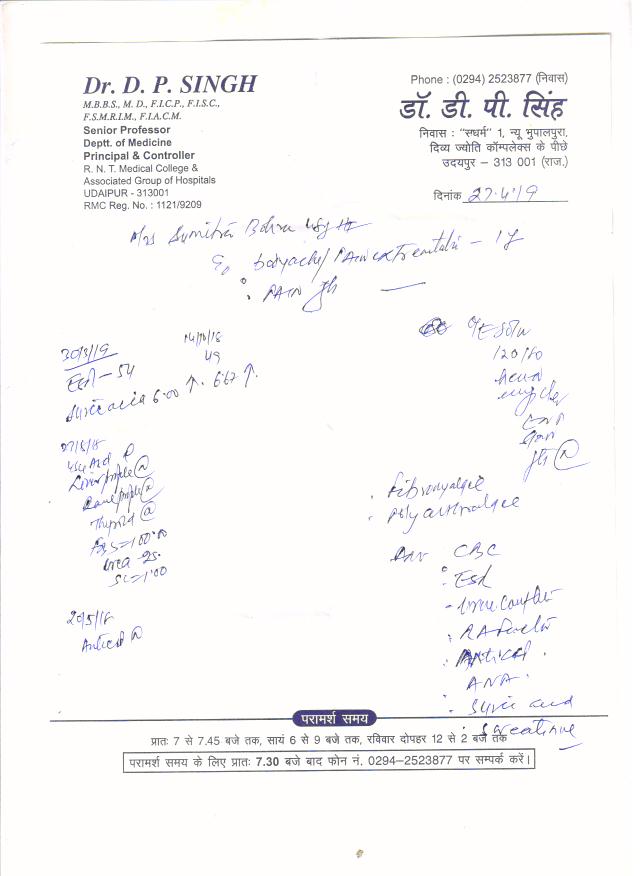 Dr. D. P. SINGH
M.B.B.S., M. D., F.I.C.P., F.I.S.C.,
F.S.M.R.I.M., F.I.A.C.M.
Senior Professor
Deptt. of Medicine
Principal & Controller
R. N. T. Medical College &
Associated Group of Hospitals
UDAIPUR - 313001
RMC Reg. No. : 1121/9209
Phone : (0294) 2523877 (निवास)
डॉ. डी. पी. सिंह
निवास : "सधर्म" 1, न्यू भुपालपुरा,
दिव्य ज्योति कॉम्पलेक्स के पीछे
उदयपुर – 313 001 (राज.)
दिनांक 27.4.19
Mrs Sumitra Bohra
bodyache/ Pain
PAIN
30/3/19
ESR – 54
14/10/18
49
S uric acid 6.00 ↑. 6.67 ↑.
Liver profile (N)
Thyroid (N)
FBS = 100.00
Urea - 25.
SC = 1.00
20/5/18
Anticcp (N)
120/80
(N)
. Fibromyalgia
. Polyarthralgia
Adv CBC
: ESR
. RA Factor
. Anticcp .
ANA .
. S uric acid
: S creatinine
परामर्श समय
प्रातः 7 से 7.45 बजे तक, सायं 6 से 9 बजे तक, रविवार दोपहर 12 से 2 बजे तक
परामर्श समय के लिए प्रातः 7.30 बजे बाद फोन नं. 0294–2523877 पर सम्पर्क करें।